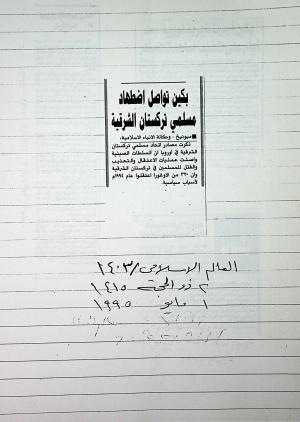 بكين تواصل اضطهاد
مسلمي تركستان الشرقية
■ ميونيخ - وكالة الانباء الاسلامية:
ذكرت مصادر اتحاد مسلمي تركستان
الشرقية في اوروبا ان السلطات الصينية
واصلت عمليات الاعتقال والتعذيب
والقتل للمسلمين في تركستان الشرقية
وان ٣٦٠ من الاوغورا اعتقلوا عام ١٩٩٤م
لأسباب سياسية.
العالم الاسلامي / ١٤٠٣
٢ ذو الحجة ١٤١٥
١ مايو ١٩٩٥